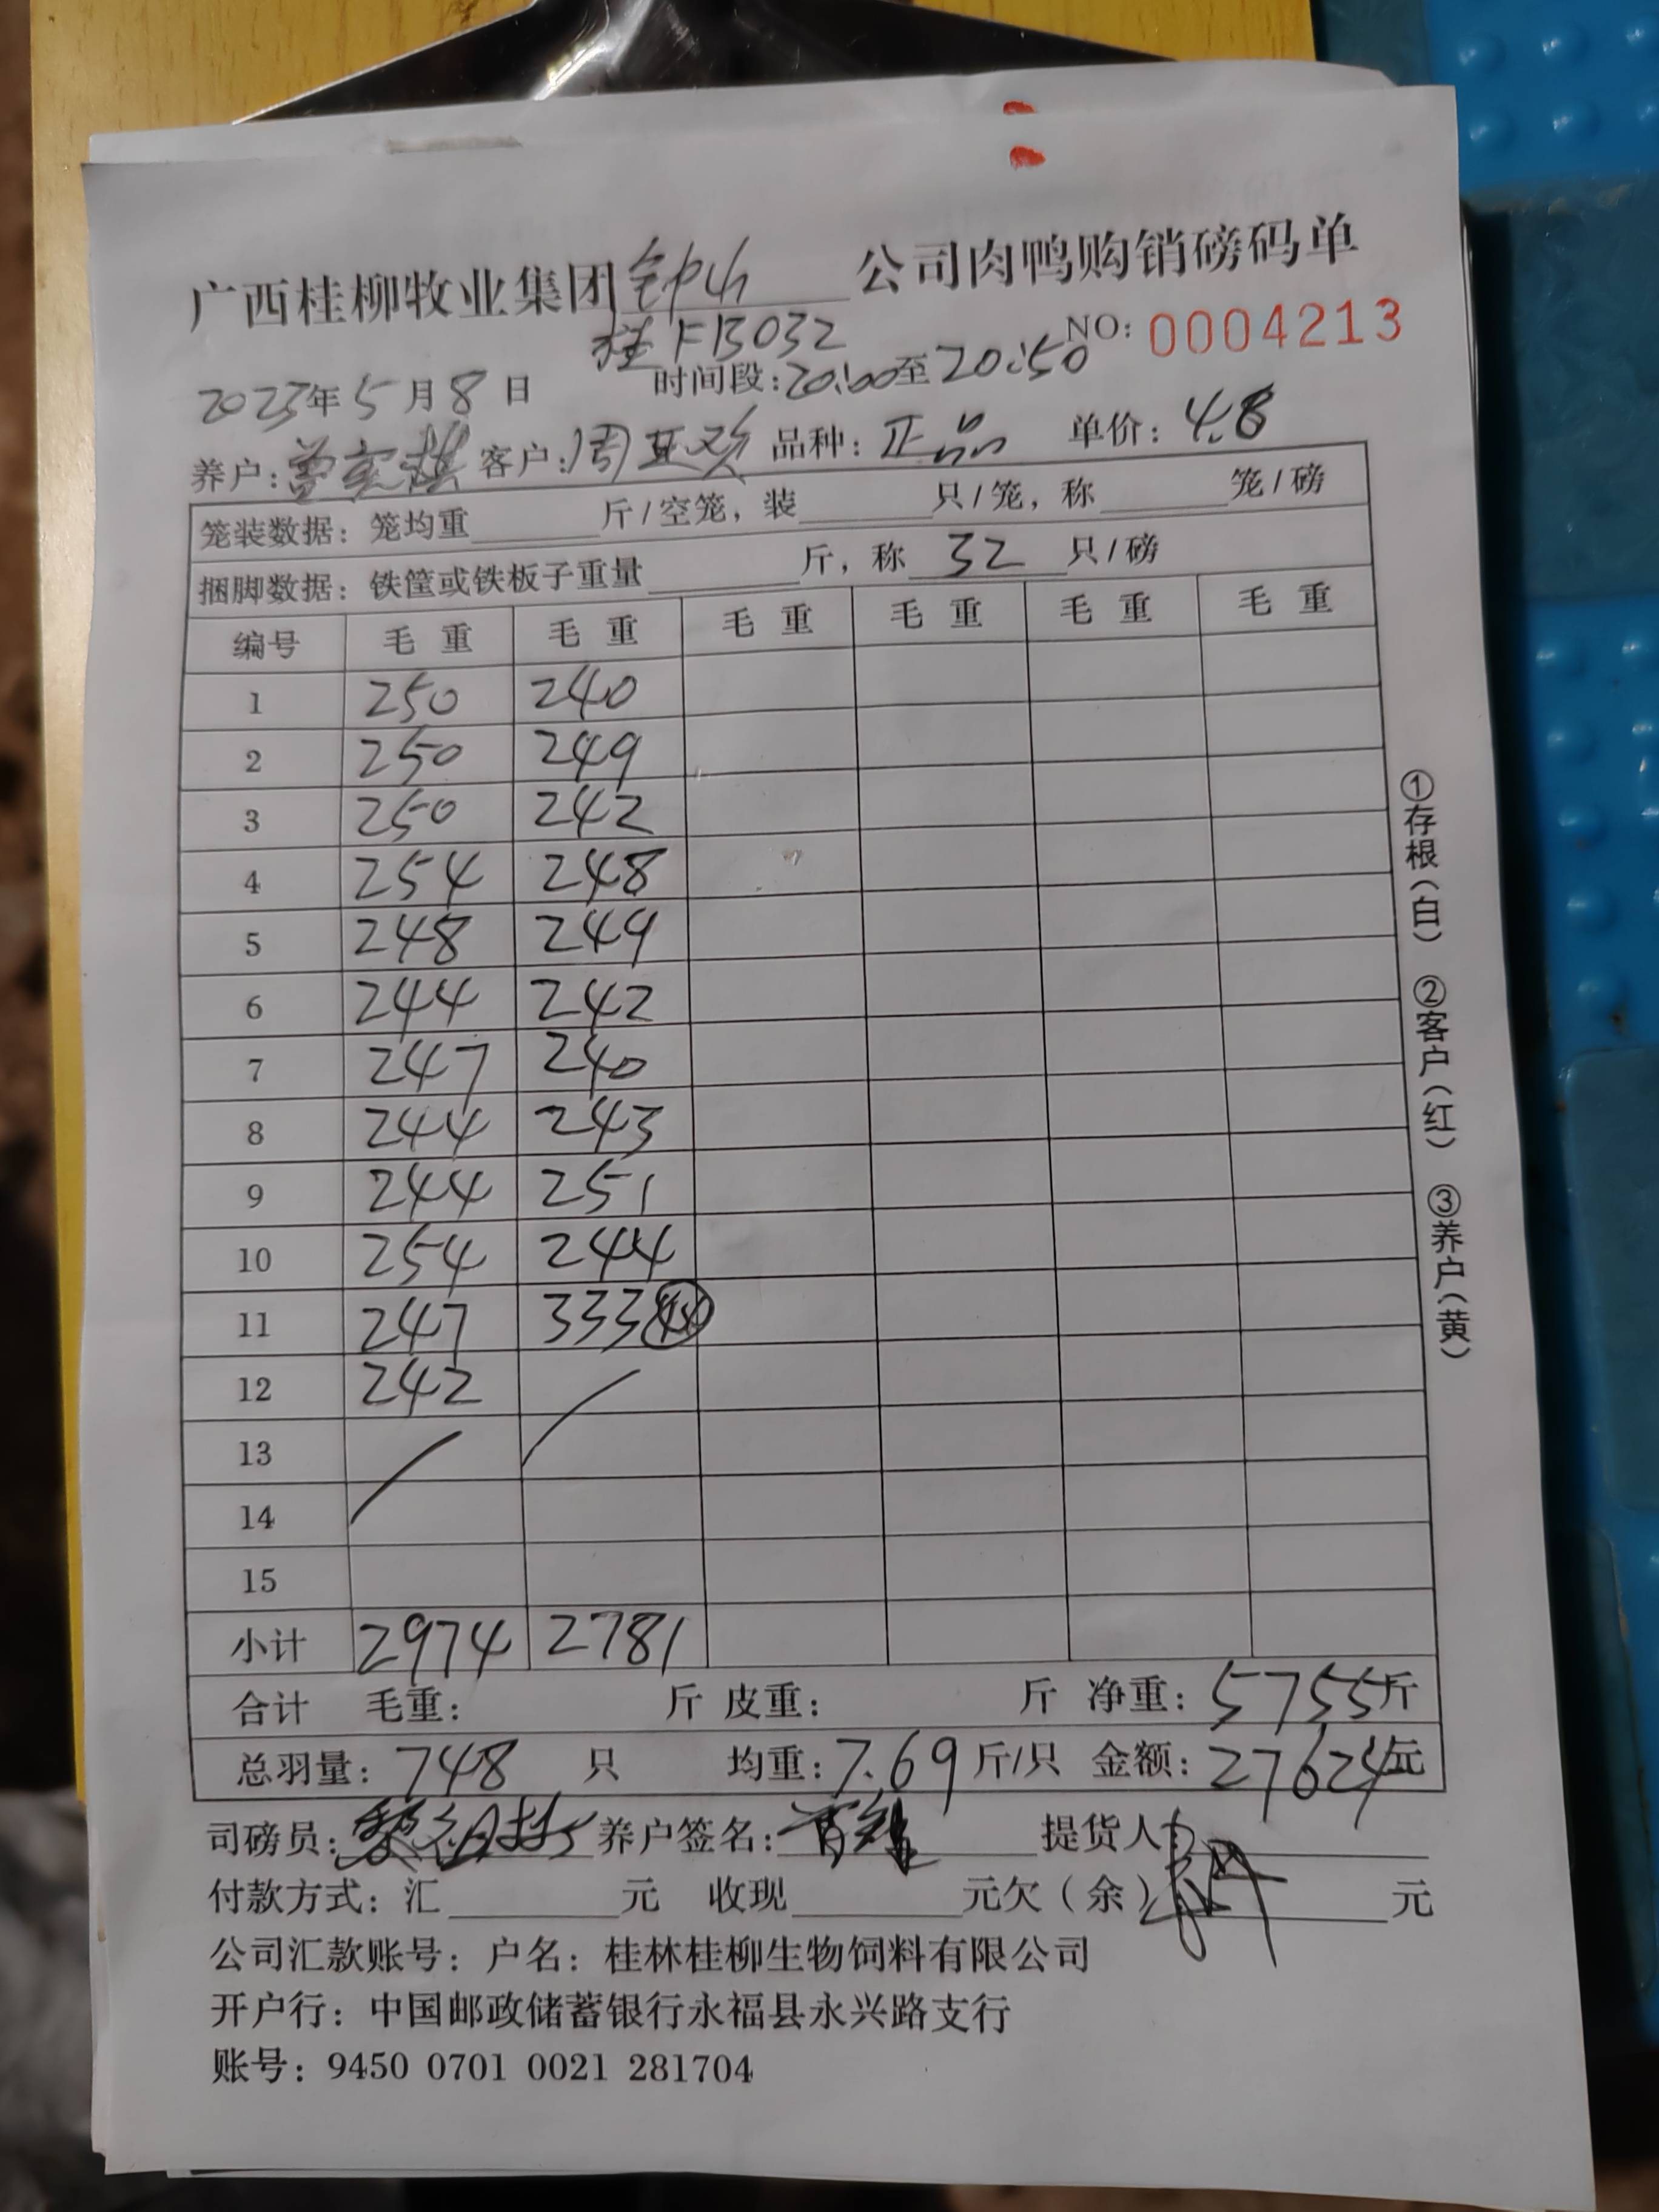 广西桂柳牧业集团钟山公司肉鸭购销磅码单
桂FB032 NO: 0004213
2023年5月8日 时间段:20:00至20:50
养户: 客户:周亚欢 品种:正品 单价:4.8
笼装数据:笼均重 斤/空笼,装 只/笼,称 笼/磅
捆脚数据:铁筐或铁板子重量 斤,称 32 只/磅
编号 毛重 毛重 毛重 毛重 毛重 毛重
1 250 240
2 250 249
3 250 242
4 254 248
5 248 249
6 244 242
7 247 240
8 244 243
9 244 251
10 254 244
11 247 333 44
12 242
13
14
15
小计 2974 2781
合计 毛重: 斤 皮重: 斤 净重:5755斤
总羽量:748 只 均重:7.69斤/只 金额:27624元
司磅员: 养户签名: 提货人
付款方式:汇 元 收现 元欠(余) 元
公司汇款账号:户名:桂林桂柳生物饲料有限公司
开户行:中国邮政储蓄银行永福县永兴路支行
账号:9450 0701 0021 281704
①存根(白) ②客户(红) ③养户(黄)